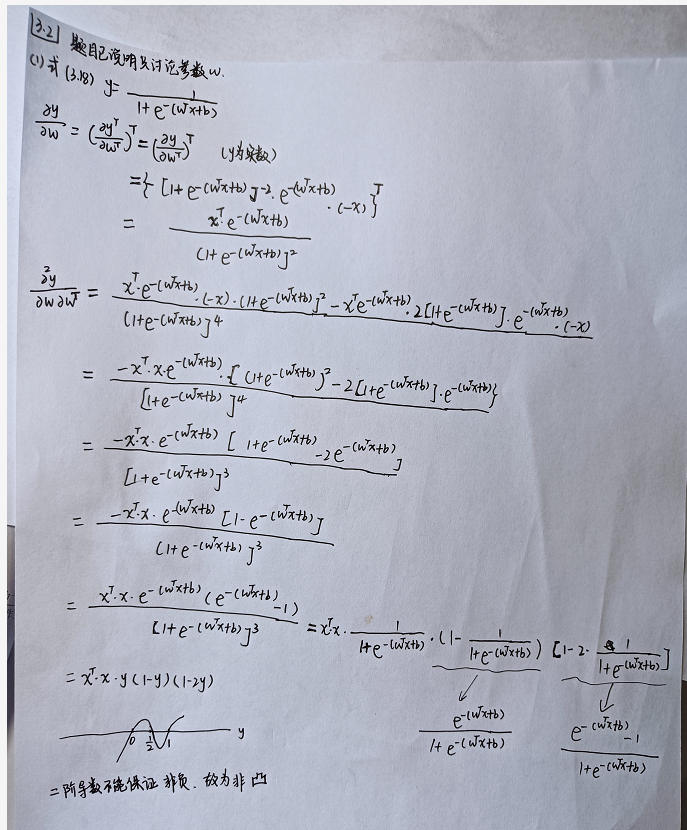 [3.2] 题目已说明只讨论参数w.
(1) 式(3.18) y = 1 / (1+e^-(wᵀx+b))
∂y/∂w = (∂yᵀ/∂wᵀ)ᵀ = (∂y/∂wᵀ)ᵀ (y为实数)
= {- [1+e^-(wᵀx+b)]^-2 · e^-(wᵀx+b) · (-x)}ᵀ
= xᵀ·e^-(wᵀx+b) / (1+e^-(wᵀx+b)]²
∂²y/∂w∂wᵀ = xᵀ·e^-(wᵀx+b)·(-x)·(1+e^-(wᵀx+b)]² - xᵀe^-(wᵀx+b)·2[1+e^-(wᵀx+b)]·e^-(wᵀx+b)·(-x) / (1+e^-(wᵀx+b)]⁴
= -xᵀ·x·e^-(wᵀx+b)·{(1+e^-(wᵀx+b))² - 2[1+e^-(wᵀx+b)]·e^-(wᵀx+b)} / [1+e^-(wᵀx+b)]⁴
= -xᵀ·x·e^-(wᵀx+b) [1+e^-(wᵀx+b) - 2e^-(wᵀx+b)] / [1+e^-(wᵀx+b)]³
= -xᵀ·x·e^-(wᵀx+b) [1-e^-(wᵀx+b)] / (1+e^-(wᵀx+b)]³
= xᵀ·x·e^-(wᵀx+b) (e^-(wᵀx+b) - 1) / [1+e^-(wᵀx+b)]³ = xᵀx · 1/(1+e^-(wᵀx+b)) · (1 - 1/(1+e^-(wᵀx+b))) [1-2· 1/(1+e^-(wᵀx+b))]
= xᵀ·x·y(1-y)(1-2y)
e^-(wᵀx+b) / (1+e^-(wᵀx+b))
e^-(wᵀx+b) - 1 / (1+e^-(wᵀx+b))
0 1/2 1 y
二阶导数不能保证非负. 故为非凸